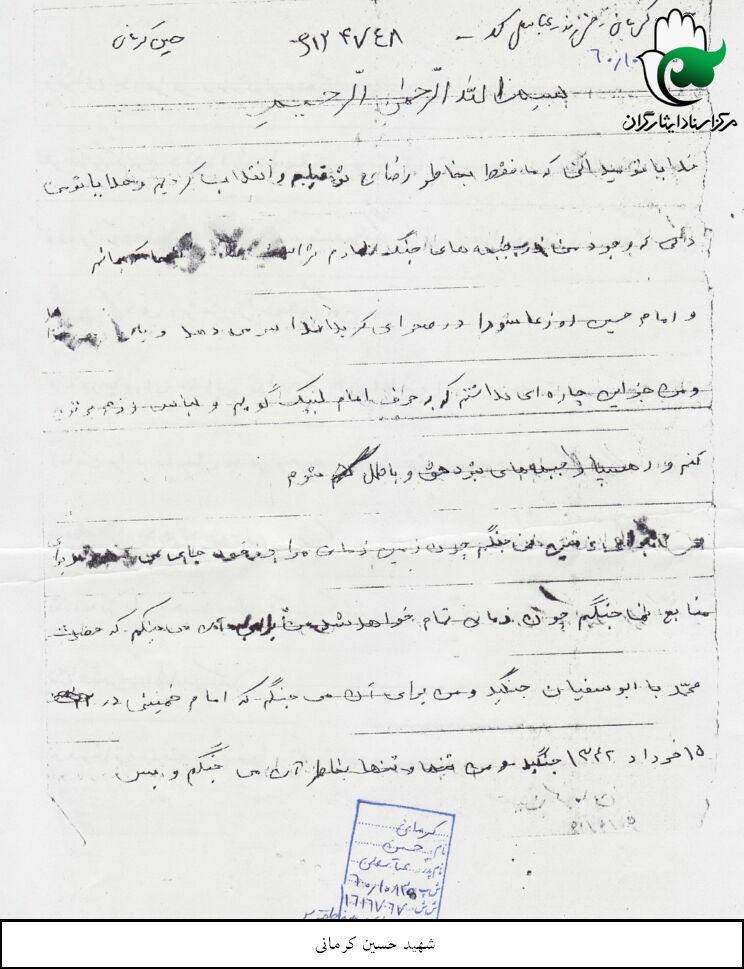 کرمانی فرزند عباسعلی کد ۹۱۲۴۷۴۸ حسین کرمانی
مرکز اسناد ایثارگران
بسم الله الرحمن الرحیم
خدایا تو میدانی که ما فقط بخاطر رضای تو قیام و انقلاب کردیم و خدایا تو می
دانی که وجود من در جبهه های جنگ
و امام حسین روز عاشورا در صحرای کربلا ندا سر می دهد و
و من جز این چاره ای نداشتم که به حرف امام لبیک گویم و لباس رزم بر تن
کنم و رهسپار جبهه های نبرد حق و باطل شوم
من برای زمین نمی جنگم چون زمین زمانی مرا در خود جای می دهد برای
منابع نمی جنگم چون زمانی تمام خواهد شد من برای آن می جنگم که حضرت
محمد با ابوسفیان جنگید و من برای آن می جنگم که امام خمینی در
۱۵ خرداد ۱۳۴۲ جنگید و من تنها و تنها بخاطر آن می جنگم و بس
کرمانی
نام حسین
نام پدر عباسعلی
ش ش ۱۶۱۶۷۰۶۷
شهید حسین کرمانی